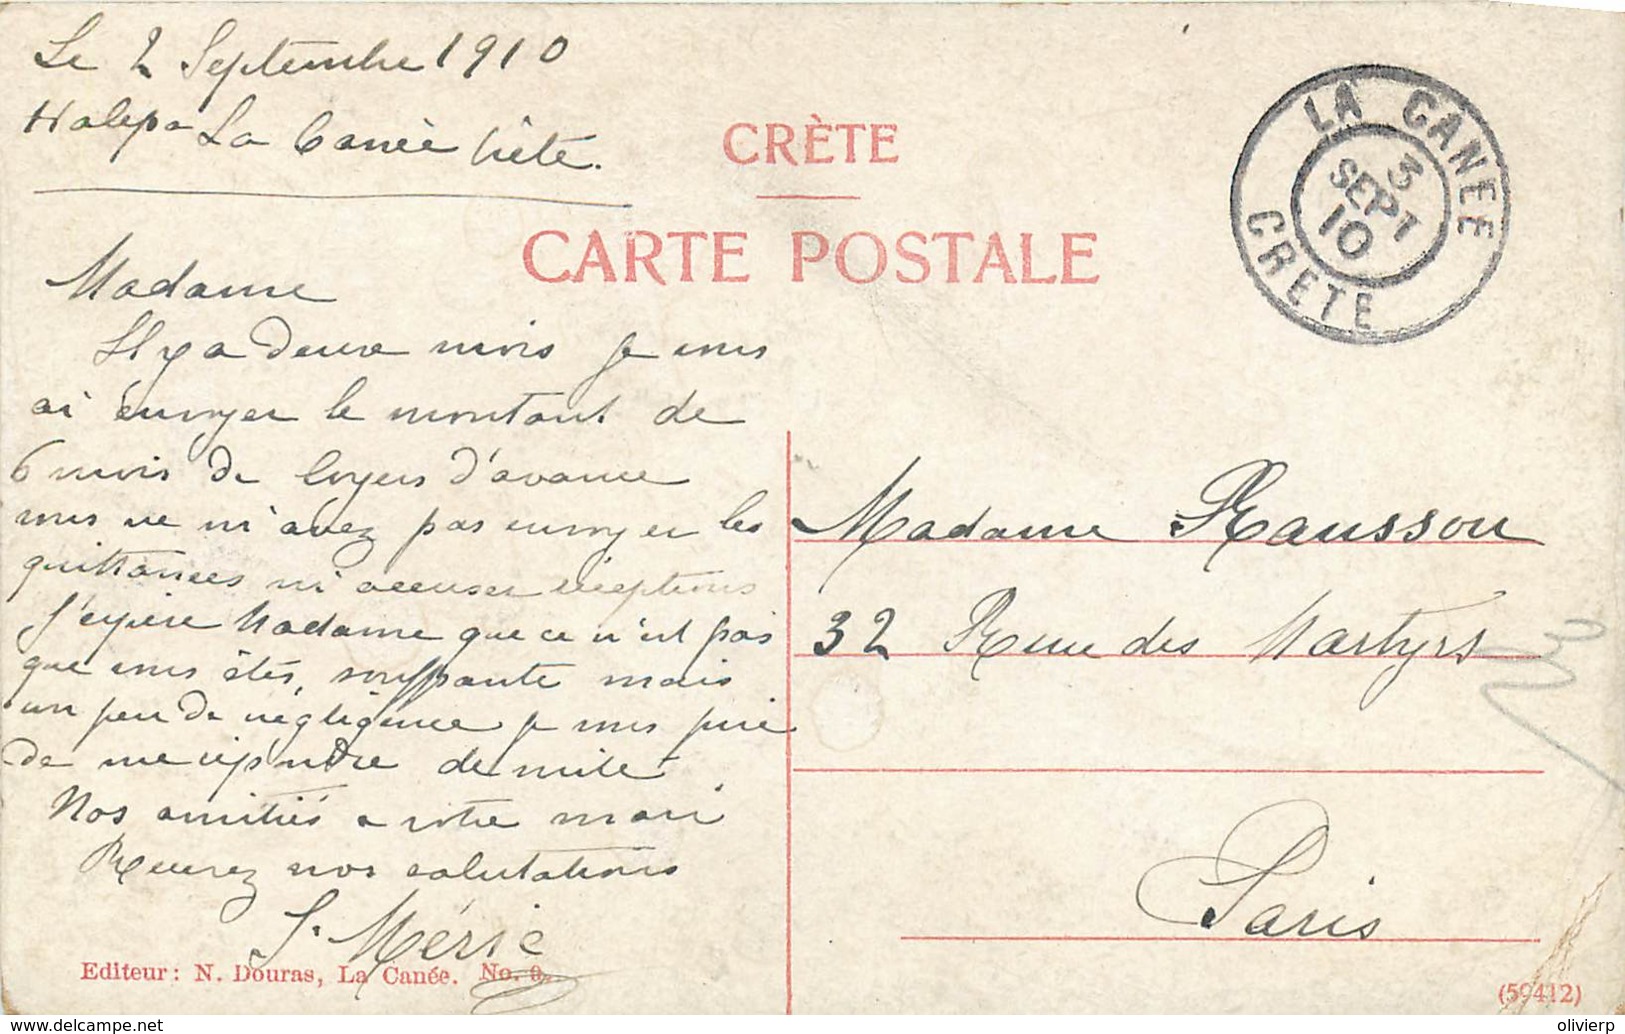 Le 2 Septembre 1910
Halepa La Canée Crète.
CRÈTE
CARTE POSTALE
LA CANEE
3
SEPT
10
CRETE
Madame
Il y a deux mois je vous
ai envoyer le montant de
6 mois de loyers d'avance
vous ne m'avez pas envoyer les
quittances ni accuser réceptions
J'espère Madame que ce n'est pas
que vous êtes, souffrante mais
un peu de négligence je vous prie
de me répondre de suite
Nos amitiés a votre mari
Recevez nos salutations
J. Méric
Madame Rausson
32 Rue des Martyrs
Paris
Editeur: N. Douras, La Canée. No. 9.
(59412)
www.delcampe.net
olivierp